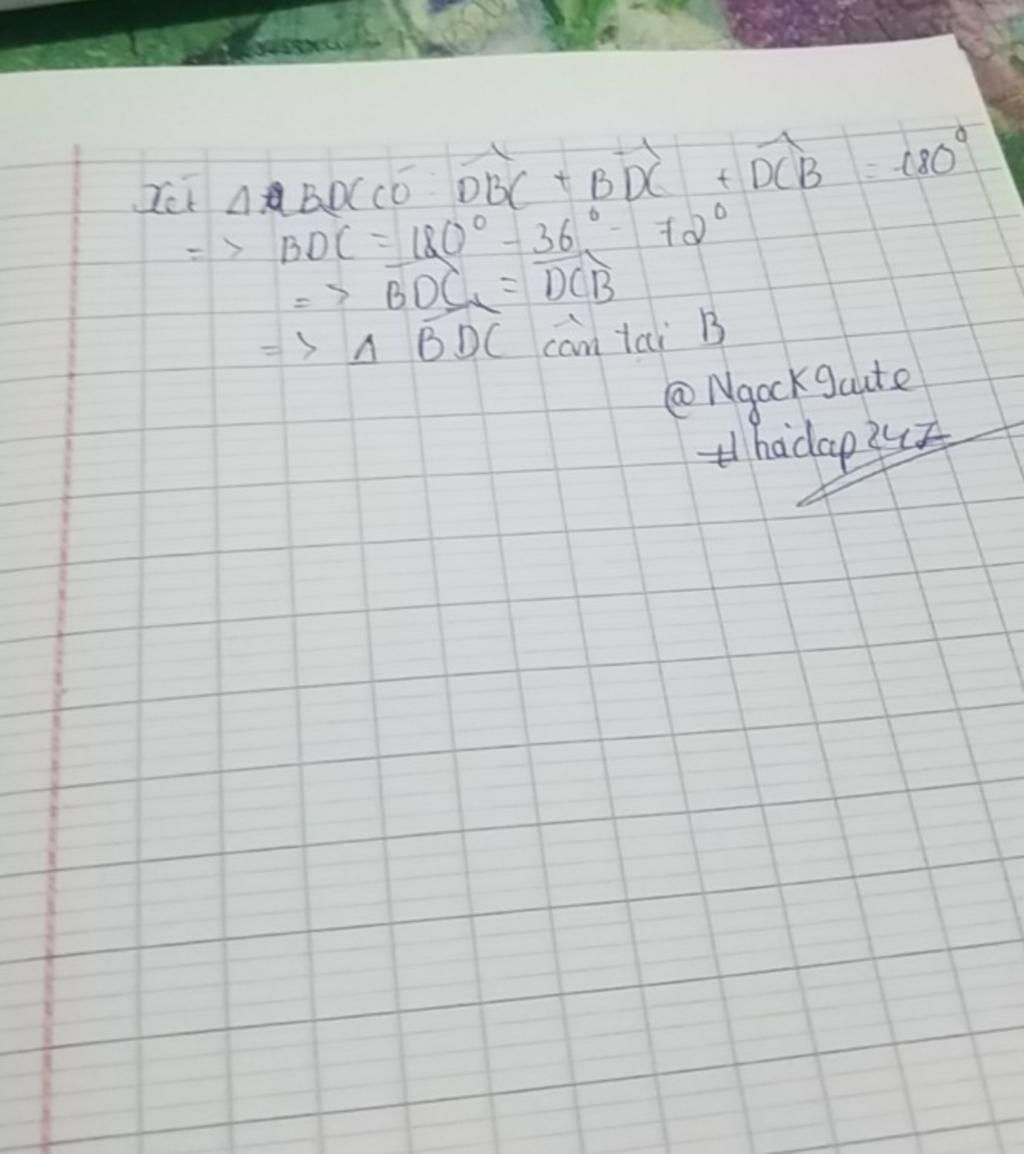 Xét Δ BDC có: DBC + BDC + DCB = 180°
=> BDC = 180° - 36° - 72°
=> BDC = DCB
=> Δ BDC cân tại B
@Ngock9cute
#hoidap247